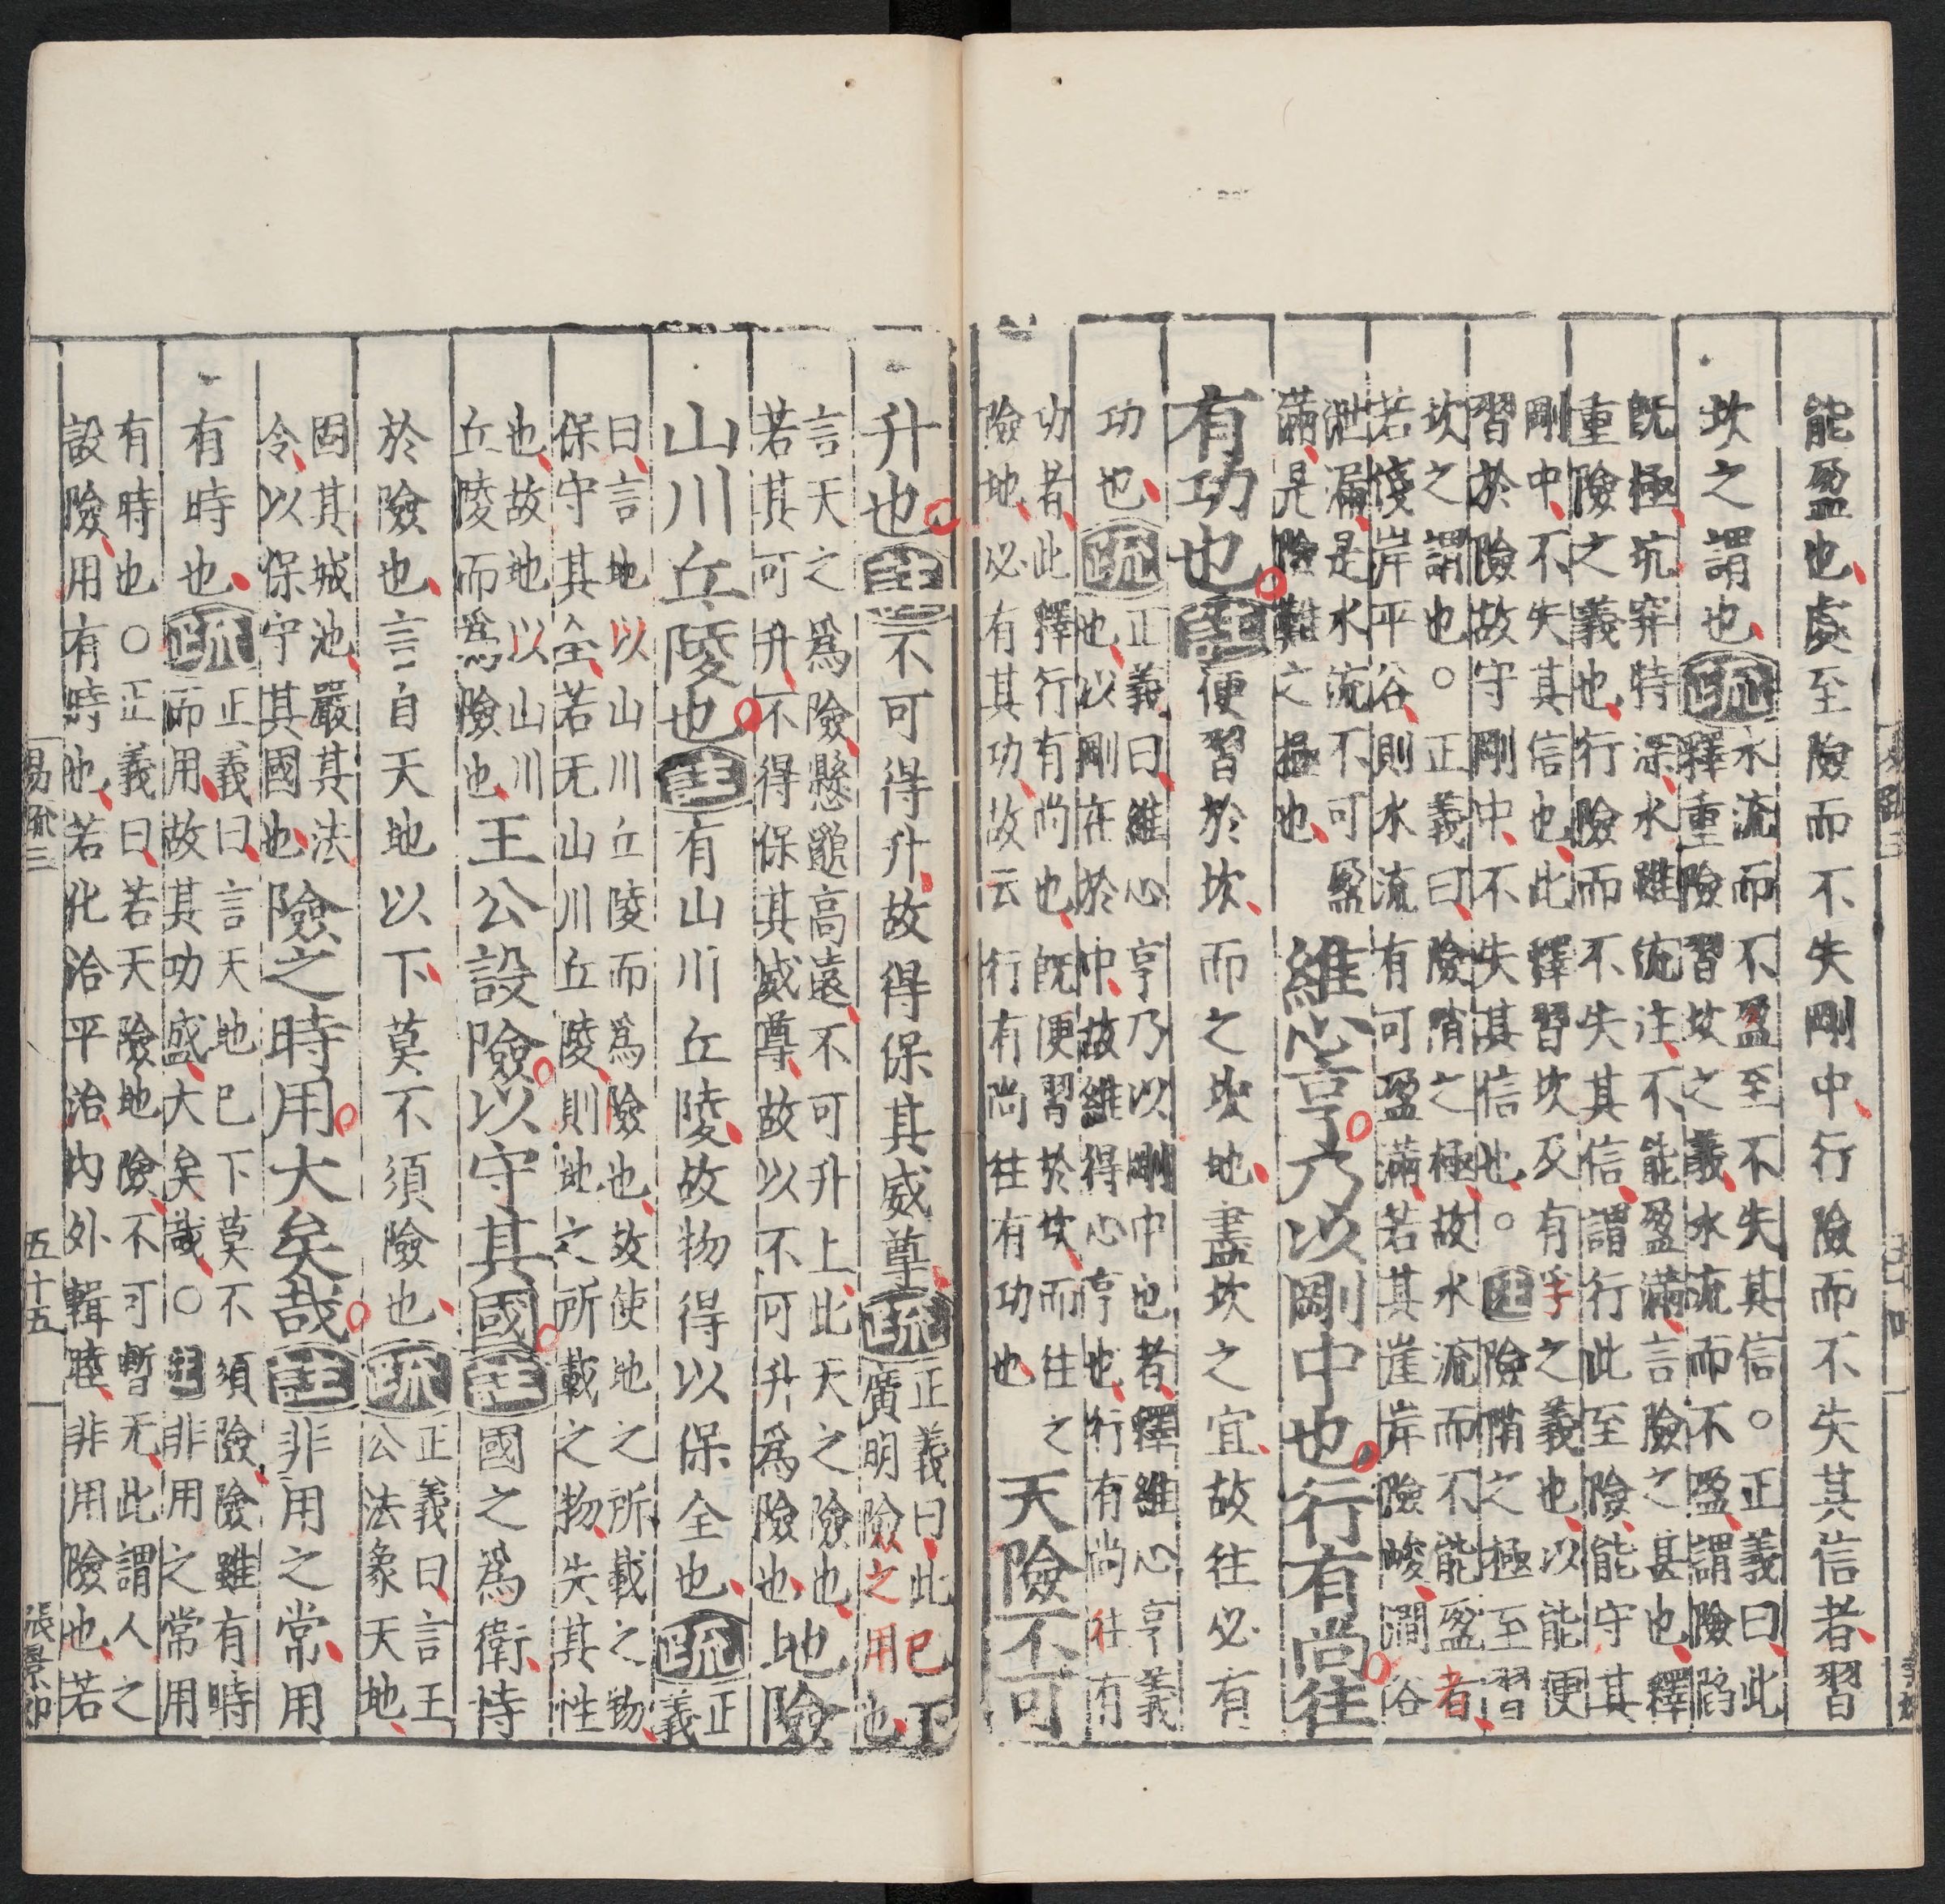 能盈也處至險而不失剛中行險而不失其信者習
坎之謂也疏
水流而不盈至不失其信○正義曰此
釋重險習坎之義水流而不盈謂險陷
旣極坑穽特深水雖流注不能盈滿言險之甚也釋
重險之義也行險而不失其信謂行此至險能守其
剛中不失其信也此釋習坎及有孚之義也以能便
習於險故守剛中不失其信也○注險陗之極至習
坎之謂也○正義曰險陗之極故水流而不能盈者
若淺岸平谷則水流有可盈滿若其崖岸險峻澗谷
泄漏是水流不可盈
滿是險難之極也
維心亨乃以剛中也行有尚往
有功也注便習於坎而之坎地盡坎之宜故往必有
功也疏
正義曰維心亨乃以剛中也者釋維心亨義
也以剛在於中故維得心亨也行有尚往有
功者此釋行有尚也旣便習於坎而往之
險地必有其功故云行有尚往有功也
天險不可
升也注不可得升故得保其威尊疏
正義曰此已下
廣明險之用也
言天之爲險懸邈高遠不可升上此天之險也
若其可升不得保其威尊故以不可升爲險也
地險
山川丘陵也注有山川丘陵故物得以保全也疏
正
義
曰言地以山川丘陵而爲險也故使地之所載之物
保守其全若无山川丘陵則地之所載之物失其性
也故地以山川
丘陵而爲險也
王公設險以守其國注國之爲衛恃
於險也言自天地以下莫不須險也疏
正義曰言王
公法象天地
固其城池嚴其法
令以保守其國也
險之時用大矣哉注非用之常用
有時也疏
正義曰言天地已下莫不須險險雖有時
而用故其功盛大矣哉○注非用之常用
有時也○正義曰若天險地險不可暫无此謂人之
設險用有時也若化洽平治內外輯睦非用險也若
易疏三
五十五
張景郎